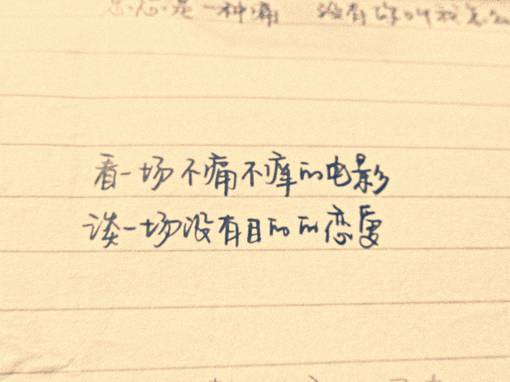 是一种痛 没有你叫我怎么
看一场不痛不痒的电影
谈一场没有目的的恋爱